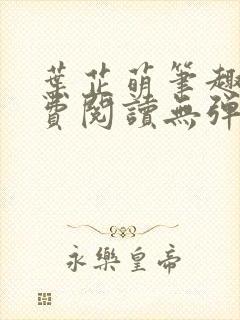 葉芷萌筆趣
費閱讀無彈
永樂皇帝